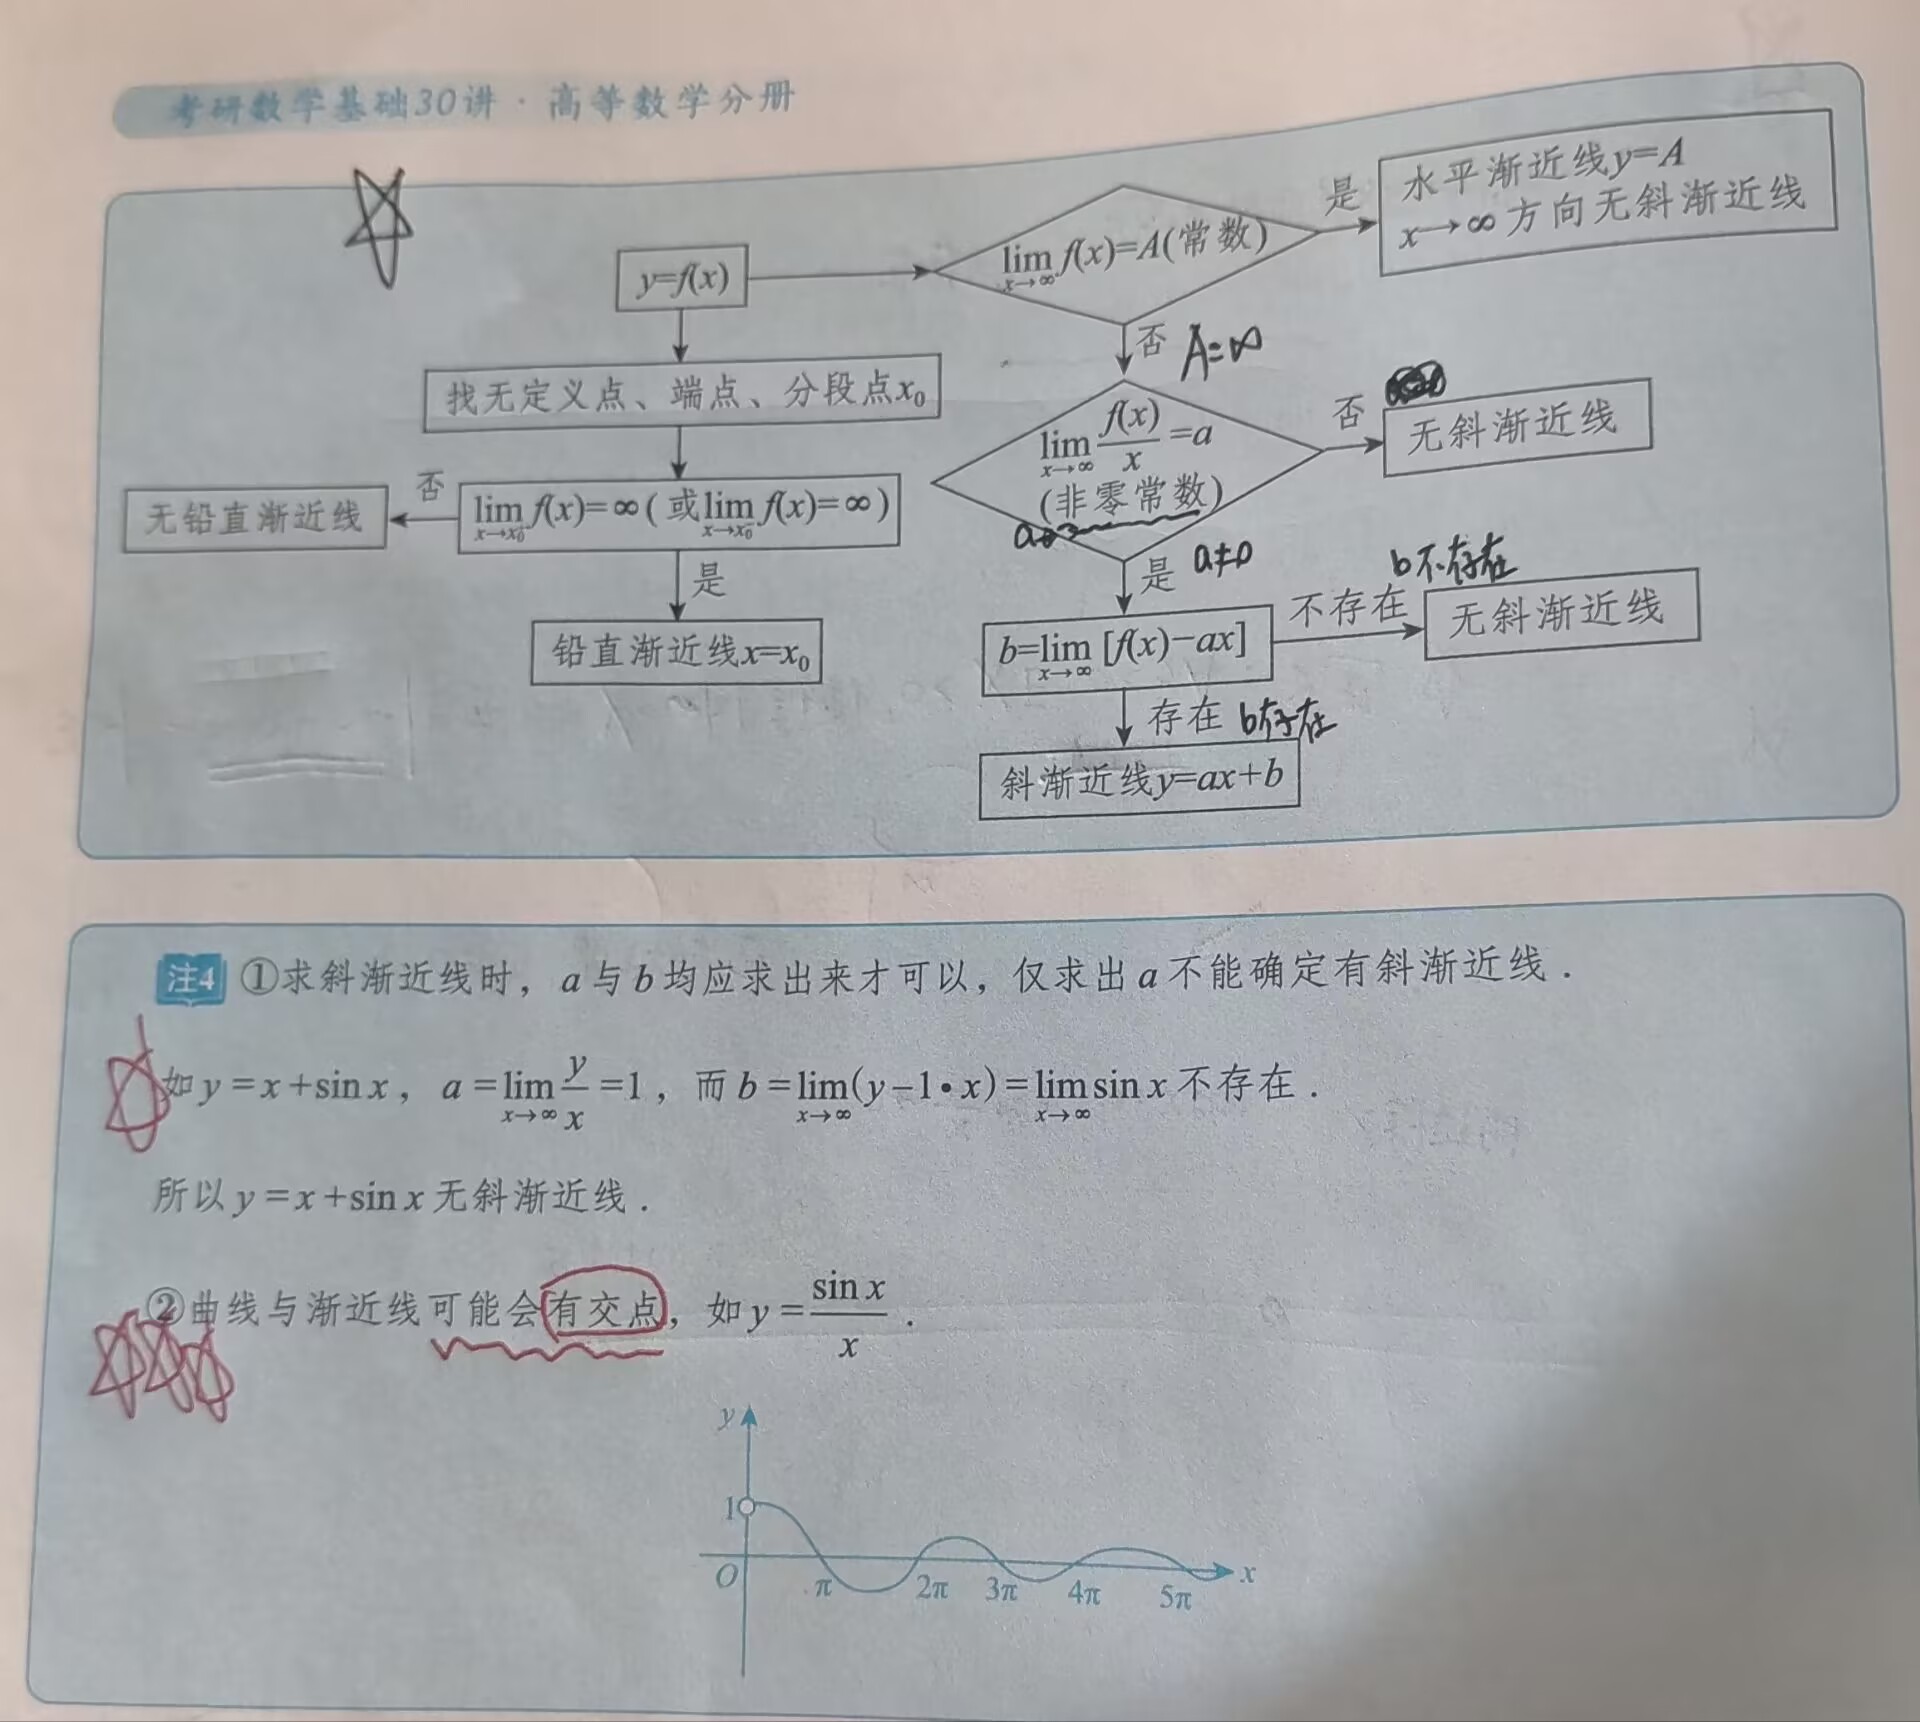 考研数学基础30讲·高等数学分册
y=f(x)
lim x→∞ f(x)=A(常数)
是
水平渐近线y=A
x→∞方向无斜渐近线
否 A=∞
找无定义点、端点、分段点x₀
lim x→∞ f(x)/x =a
(非零常数)
否
无斜渐近线
无铅直渐近线
否
lim x→x₀⁺ f(x)=∞(或lim x→x₀⁻ f(x)=∞)
是
是 a≠0
b不存在
铅直渐近线x=x₀
b=lim x→∞ [f(x)-ax]
不存在
无斜渐近线
存在 b存在
斜渐近线y=ax+b
注4 ①求斜渐近线时，a与b均应求出来才可以，仅求出a不能确定有斜渐近线．
如y=x+sin x，a=lim x→∞ y/x=1，而b=lim x→∞ (y-1•x)=lim x→∞ sin x不存在．
所以y=x+sin x无斜渐近线．
②曲线与渐近线可能会有交点，如y=sin x/x．
y
1
O π 2π 3π 4π 5π x